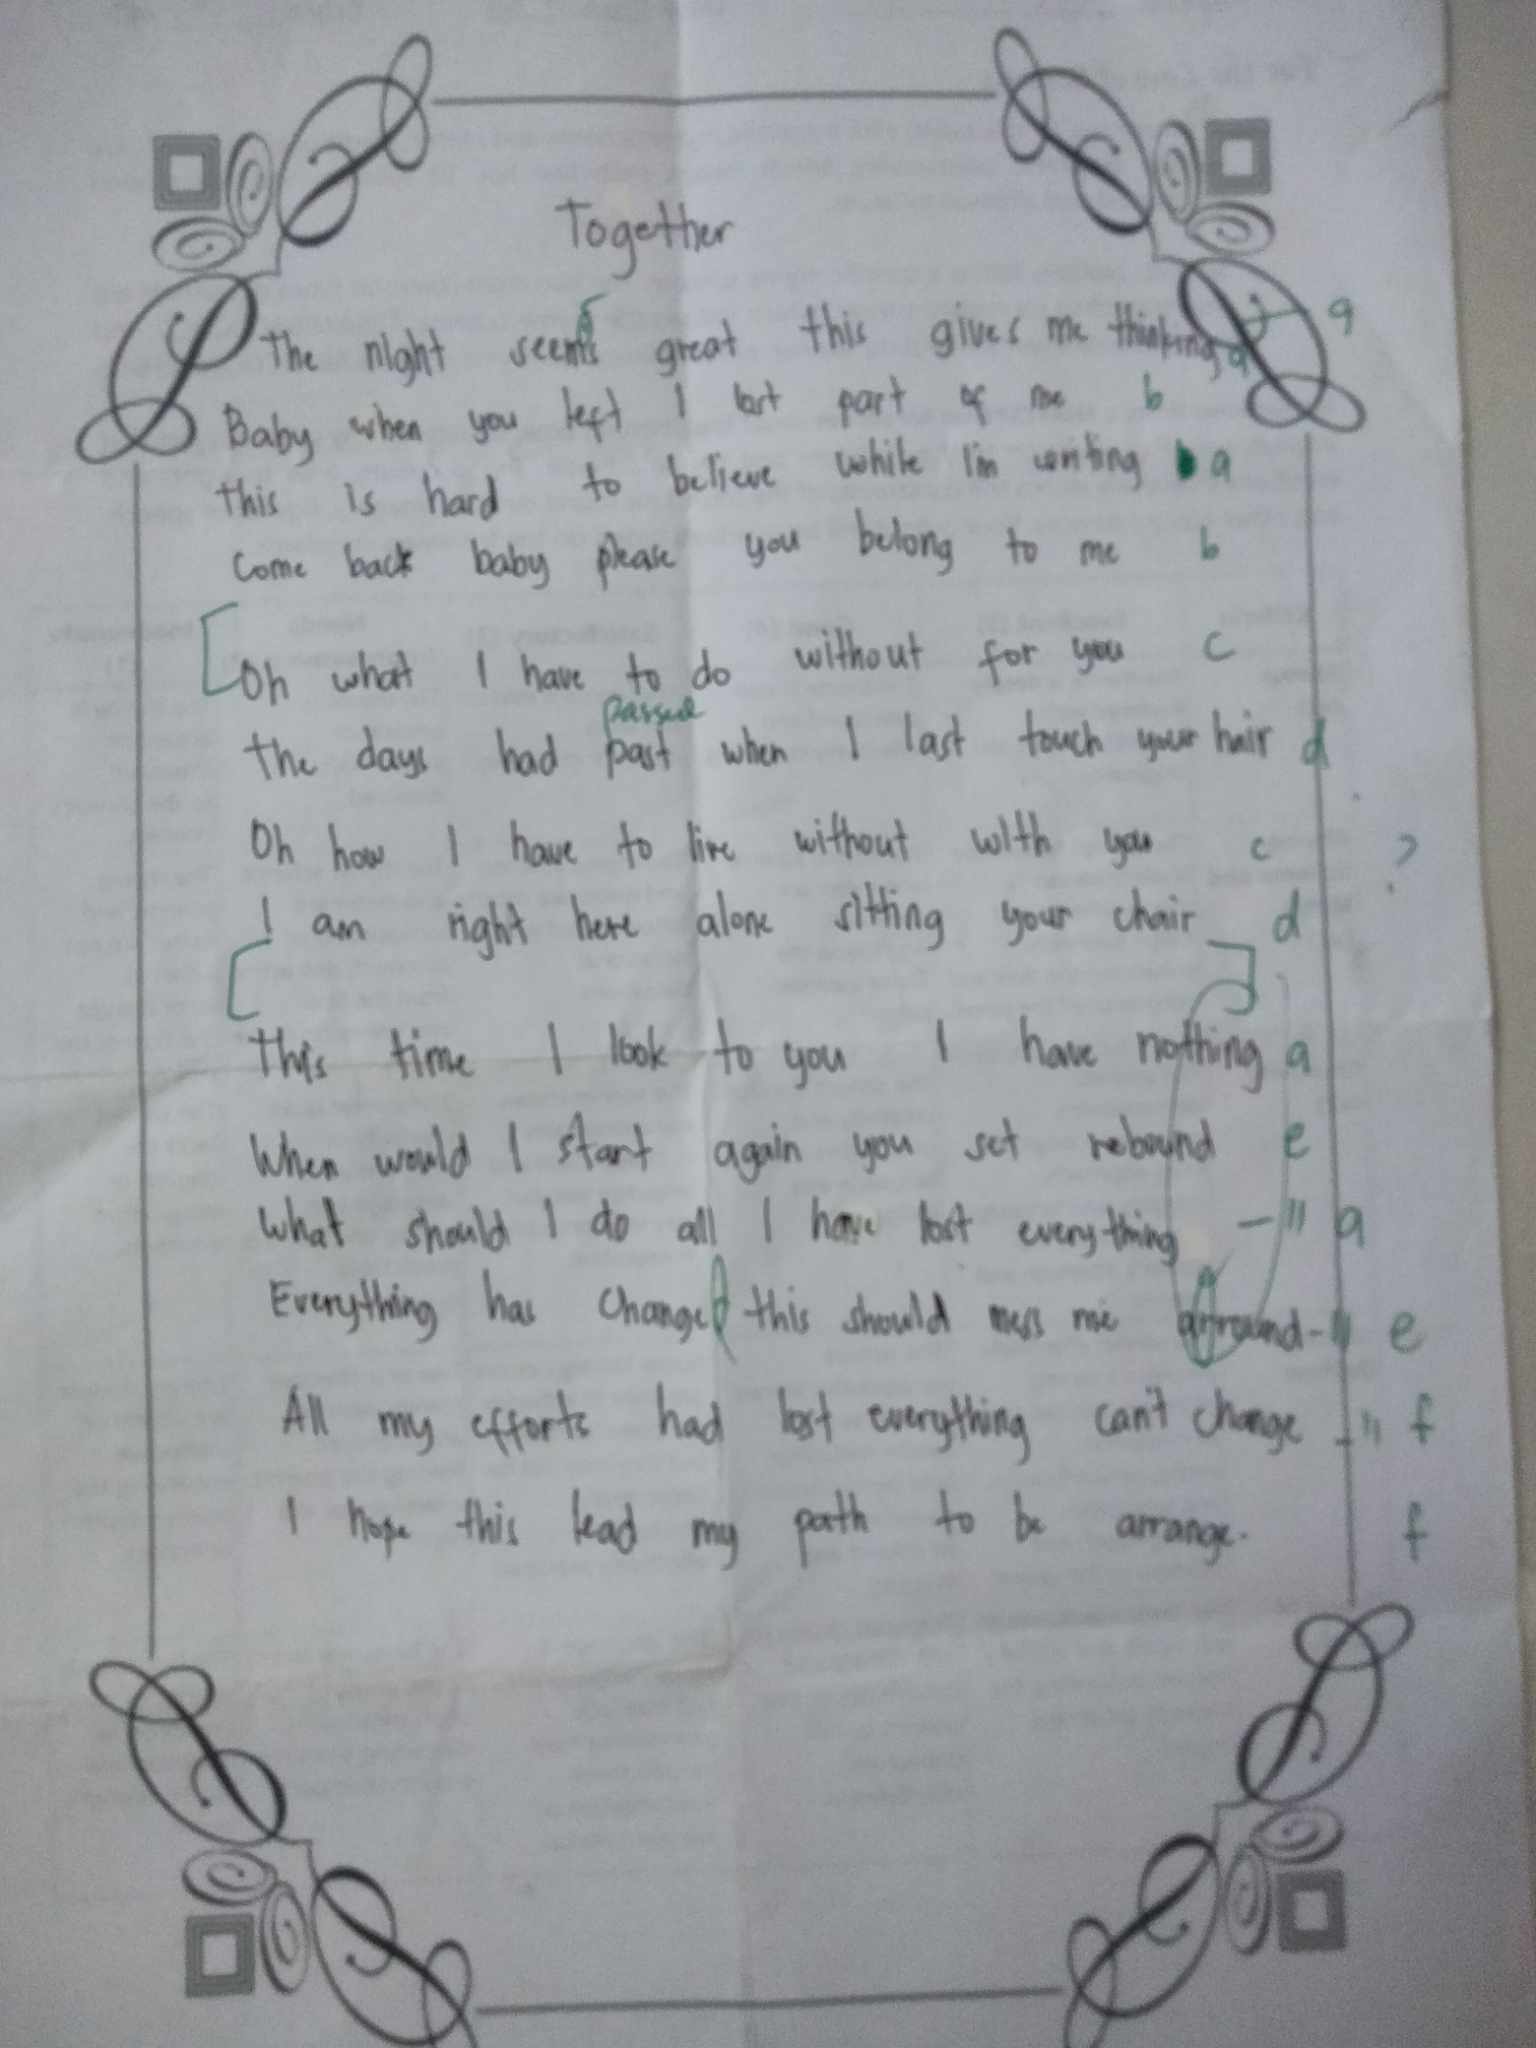 Together
The night seems great this gives me thinking a a
Baby when you left I lost part of me b
this is hard to believe while I'm writing a
Come back baby please you belong to me b
Oh what I have to do without for you c
passed
the days had past when I last touch your hair d
Oh how I have to live without with you c ?
I am right here alone sitting your chair d
This time I look to you I have nothing a
When would I start again you set rebound e
What should I do all I have lost everything - " a
Everything has changed this should mess me arround - " e
All my efforts had lost everything can't change - " f
I hope this lead my path to be arrange. f